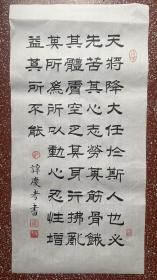 天將降大任於斯人也必
先苦其心志勞其筋骨餓
其體膚空乏其身行拂亂
其所為所以動心忍性增
益其所不能
慶書